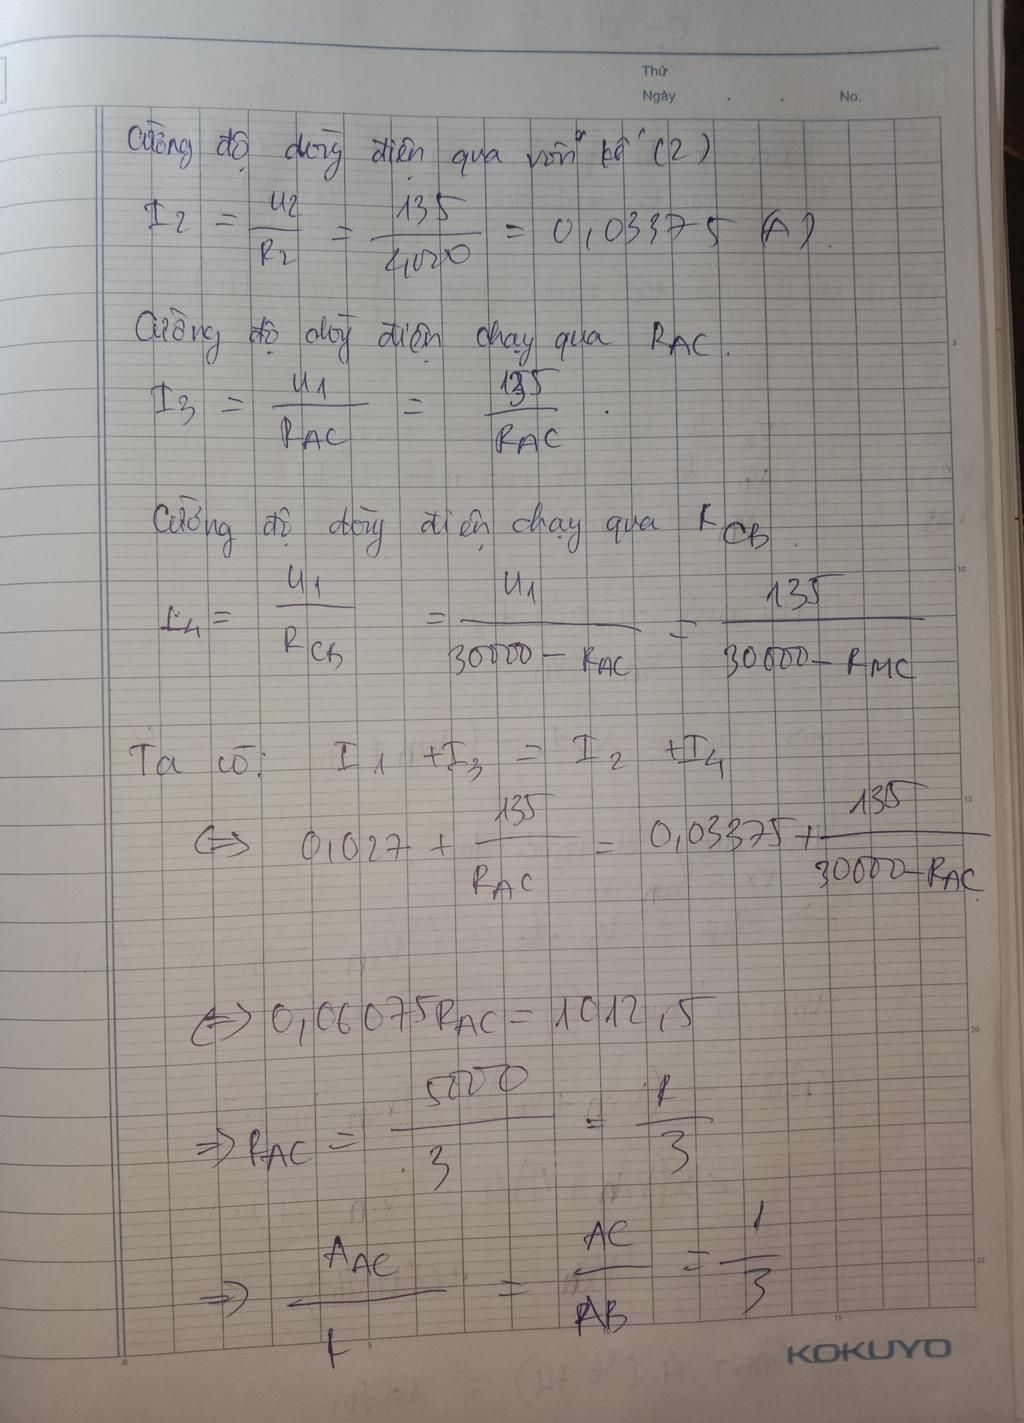 Thứ
Ngày . . No.
Cường độ dòng điện qua vôn kế (2)
I2 = U2/R2 = 135/4000 = 0,03375 (A).
Cường độ dòng điện chạy qua RAC.
I3 = U1/RAC = 135/RAC.
Cường độ dòng điện chạy qua RCB.
I4 = U1/RCB = U1/30000 - RAC = 135/30000 - RMC
Ta có: I1 + I3 = I2 + I4
<=> 0,027 + 135/RAC = 0,03375 + 135/30000 - RAC
<=> 0,06075RAC = 1012,5
=> RAC = 5000/3 = R/3
=> AAC/R = AC/AB = 1/3
5
10
15
20
25
0
5
15
KOKUYO